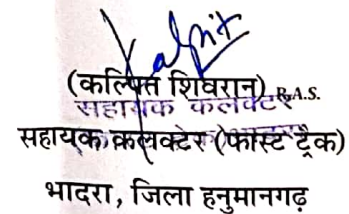 Kalpit
(कल्पित शिवरान) R.A.S.
सहायक कलक्टर
सहायक कलक्टर (फास्ट ट्रैक)
भादरा, जिला हनुमानगढ़